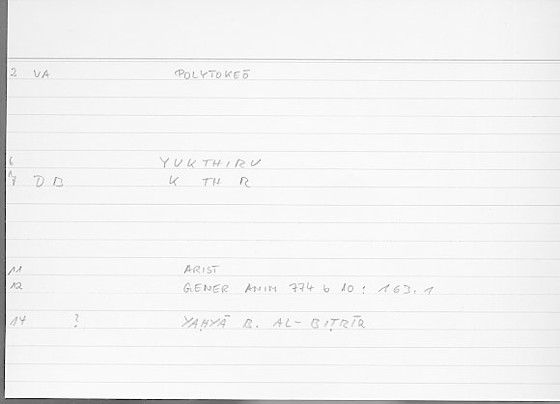 2 VA POLYTOKEŌ
6 YUKTHIRU
7 DB K TH R
11 ARIST
12 GENER ANIM 774 b 10 : 163.1
14 ? YAḤYĀ B. AL-BIṬRĪQ